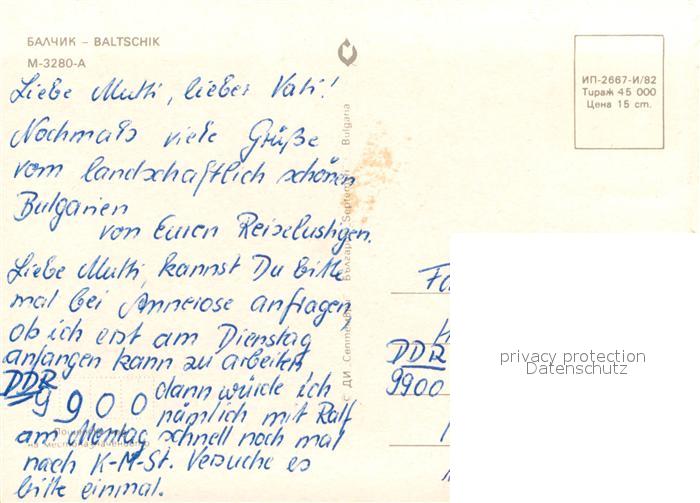 БАЛЧИК – BALTSCHIK
M-3280-A
ИП-2667-И/82
Тираж 45 000
Цена 15 ст.
Liebe Mutti, lieber Vati!
Nochmals viele Grüße
vom landschaftlich schönen
Bulgarien
von Euren Reiselustigen.
Liebe Mutti, kannst Du bitte
mal bei Annerose anfragen
ob ich erst am Dienstag
anfangen kann zu arbeiten
DDR
9900
dann würde ich
nämlich mit Ralf
am Montag schnell noch mal
nach K-M-St. Versuche es
bitte einmal.
© ДИ „Септември" България Septemvri Bulgaria
Fa
DDR
9900
privacy protection
Datenschutz